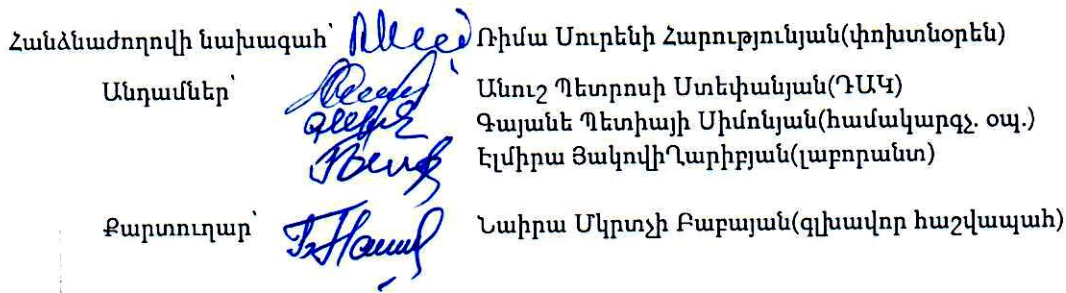 Հանձնաժողովի նախագահ՝ Ռիմա Սուրենի Հարությունյան(փոխտնօրեն)
Անդամներ՝ Անուշ Պետրոսի Ստեփանյան(ԴԱԿ)
Գայանե Պետիայի Սիմոնյան(համակարգչ. օպ.)
Էլմիրա ՅակովիՂարիբյան(լաբորանտ)
Քարտուղար՝ Նաիրա Մկրտչի Բաբայան(գլխավոր հաշվապահ)